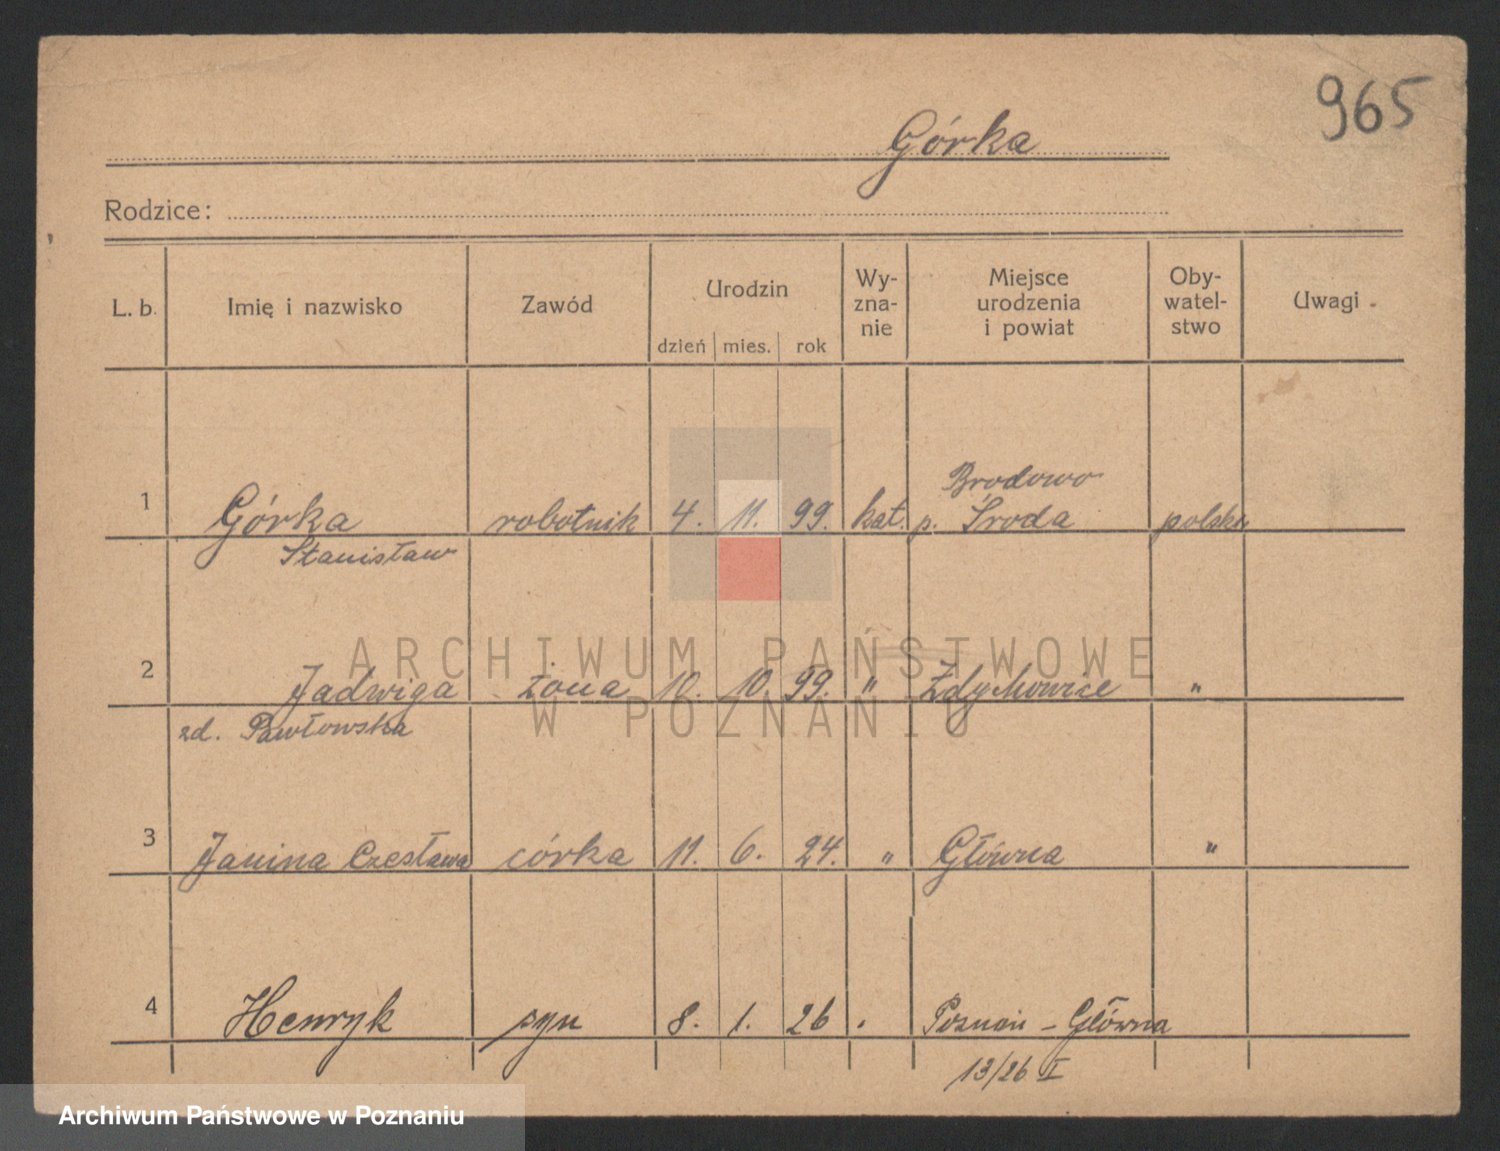 965
Górka
Rodzice:
L. b. Imię i nazwisko Zawód Urodzin dzień mies. rok Wy-zna-nie Miejsce urodzenia i powiat Oby-watel-stwo Uwagi
Brodowo
1 Górka robotnik 4. 11. 99. kat. p. Środa polska
Stanisław
ARCHIWUM PAŃSTWOWE
2 Jadwiga żona 10. 10. 99. " Zdychowice "
W POZNANIU
zd. Pawłowska
3 Janina Czesława córka 11. 6. 24. " Główna "
4 Henryk syn 8. 1. 26 " Poznań - Główna
13/26 I
Archiwum Państwowe w Poznaniu